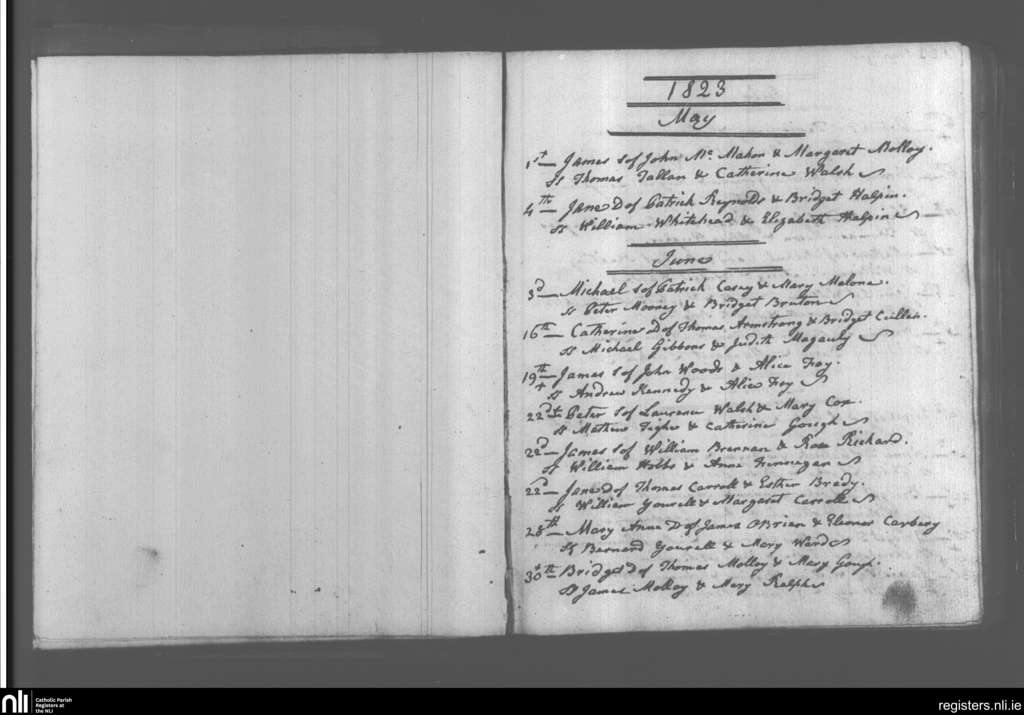 1823
May
1st — James S of John Mc. Mahon & Margaret Molloy.
Ss Thomas Tallan & Catherine Walsh
4th — Jane D of Patrick Reynolds & Bridget Halpin.
Ss William Whitehead & Elizabeth Halpin
June
3d — Michael S of Patrick Casey & Mary Malone.
Ss Peter Mooney & Bridget Bruton
16th — Catherine D of Thomas Armstrong & Bridget Cullen.
Ss Michael Gibbons & Judith Magauly
19th — James S of John Woods & Alice Foy.
+ Ss Andrew Kennedy & Alice Foy
22d + Peter S of Laurence Walsh & Mary Cox.
Ss Mathew Tighe & Catherine Gough
22d — James S of William Brennan & Rose Richard.
Ss William Hobbs & Anne Finnagan
22d — Jane D of Thomas Carroll & Esther Brady.
Ss William Yourell & Margaret Carroll
28th — Mary Anne D of James OBrian & Eleanor Carbery
Ss Bernard Yourell & Mary Ward
30th — Bridget D of Thomas Molloy & Mary Gough.
Ss James Molloy & Mary Ralph
nli
Catholic Parish
Registers at
the NLI
registers.nli.ie